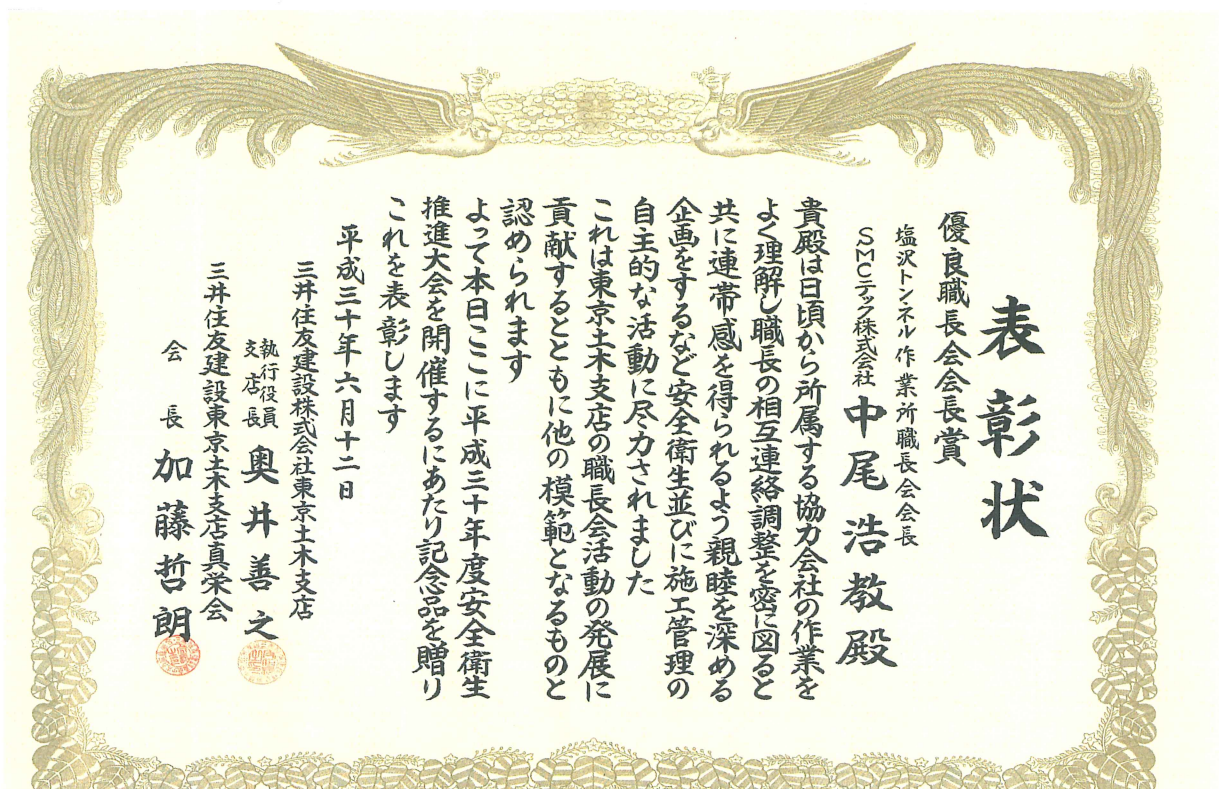 表彰状
優良職長会会長賞
塩沢トンネル作業所職長会会長
SMCテック株式会社 中尾浩教殿
貴殿は日頃から所属する協力会社の作業を
よく理解し職長の相互連絡調整を密に図ると
共に連帯感を得られるよう親睦を深める
企画をするなど安全衛生並びに施工管理の
自主的な活動に尽力されました
これは東京土木支店の職長会活動の発展に
貢献するとともに他の模範となるものと
認められます
よって本日ここに平成三十年度安全衛生
推進大会を開催するにあたり記念品を贈り
これを表彰します
平成三十年六月十二日
三井住友建設株式会社東京土木支店
執行役員
支店長 奥井善之
三井住友建設東京土木支店真栄会
会長 加藤哲朗